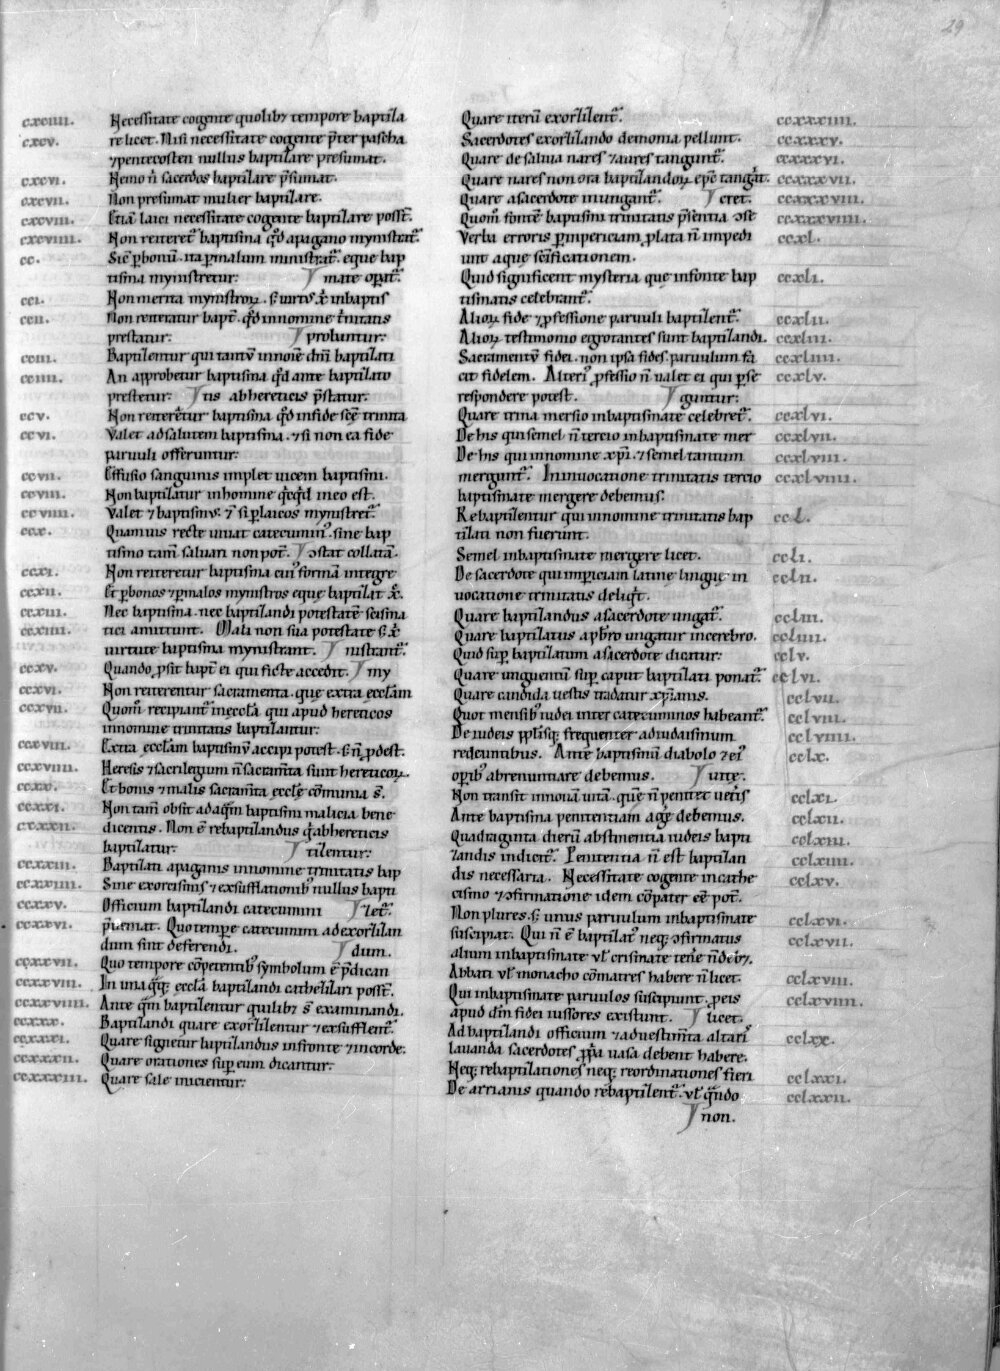 29
cxciiii. Necessitate cogente quolibꝫ tempore baptiza
cxcv. re licet. Nisi necessitate cogente p̄ter pascha
⁊ pentecosten nullus baptizare presumat.
cxcvi. Nemo n̄ sacerdos baptizare p̄sumat.
cxcvii. Non presumat mulier baptizare.
cxcviii. Etiā laici necessitate cogente baptizare possn̄t.
cxcviiii. Non reiteret᷑ baptisma qđ a pagano mynistrat᷑.
cc. Sic ꝑ bonū. ita ꝑ malum ministrat᷑. eque bap
tisma mynistretur: mate opat᷑.
cci. Non merita mynistroꝝ. s; uirtꝰ x̄ in baptis
ccii. Non reiteratur bapt̄. qđ in nomine t̄nitatis
prestatur: probuntur:
cciii. Baptizentur qui tantū in noīe dn̄i baptizati
cciiii. An approbetur baptisma qđ ante baptizato
prestetur: tis ab hereticis p̄statur:
ccv. Non reiteret᷑ur baptisma qđ in fide scē trinita
ccvi. Valet ad salutem baptisma. ⁊ si non ea fide
paruuli offeruntur:
ccvii. Effusio sanguinis implet uicem baptismi.
ccviii. Non baptizatur in homine qͥcqͥd in eo est.
ccviiii. Valet ⁊ baptismꝰ. ⁊ si ꝑ laicos mynistret᷑.
ccx. Quamuis recte uiuat catecuminꝰ. sine bap
tismo tam̄ saluari non pot̄. ɔstat collatā.
ccxi. Non reiteretur baptisma cuiꝰ formā integre
ccxii. Et ꝑ bonos ⁊ ꝑ malos mynistros eque baptizat x̄.
ccxiii. Nec baptisma. nec baptizandi potestatē scisma
ccxiiii. tici amittunt. Mali non sua potestate s; x̄
uirtute baptisma mynistrant. nistrant᷑.
ccxv. Quando ꝓsit bapt̄ ei qui ficte accedit. my
ccxvi. Non reiterentur sacramenta. que extra ecclām
ccxvii. Quom̄ recipiant᷑ in ecclā qui apud hereticos
in nomine trinitatis baptizantur:
ccxviii. Extra ecclām baptismꝰ accipi potest. s; n̄ ꝓdest.
ccxviiii. Heresis ⁊ sacrilegium n̄ sacram̄ta sunt hereticoꝝ.
ccxx. Et bonis ⁊ malis sacram̄ta ecclę cōmunia s̄.
ccxxi. Non tam̄ obsit ad aqͣm baptismi malicia bene
ccxxii. dicentis. Non ē rebaptizandus qͥ ab hereticis
baptizatur: tizentur:
ccxxiii. Baptizati a paganis in nomine trinitatis bap
ccxxiiii. Sine exorcismis ⁊ exsufflationibꝰ nullus bapti
ccxxv. Officium baptizandi catecumini zet᷑.
ccxxvi. p̄ueniat. Quo tempe catecumini ad exorzizan
dum sint deferendi. dum.
ccxxvii. Quo tempore cōpetentibꝰ symbolum ē p̄dican
ccxxviii. In una qͣqꝫ ecclā baptizandi cathetizari possn̄t.
ccxxviiii. Ante qͣm baptizentur quilibꝫ s̄ examinandi.
ccxxx. Baptizandi quare exorzizentur ⁊ exsufflent᷑.
ccxxxi. Quare signetur baptizandus in fronte ⁊ in corde.
ccxxxii. Quare orationes suꝑ eum dicantur:
ccxxxiii. Quare sale inicientur:
Quare iterū exorzizent᷑. ccxxxiiii.
Sacerdotes exorzizando demonia pellunt. ccxxxv.
Quare de saliua nares ⁊ aures tangunt᷑. ccxxxvi.
Quare nares non ora baptizandoꝝ epc̄ tangūt. ccxxxvii.
Quare a sacerdote inungant᷑. cret. ccxxxviii.
Quom̄ fontē baptismi trinitatis p̄sentia ɔse ccxxxviiii.
Verba erroris ꝑ inpericiam ꝓlata n̄ impedi ccxl.
unt aque sc̄ificationem.
Quid significent mysteria que in fonte bap ccxli.
tismatis celebrant᷑.
Alioꝝ fide ⁊ ꝓfessione paruuli baptizent᷑. ccxlii.
Alioꝝ testimonio egrotantes sunt baptizandi. ccxliii.
Sacramentū fidei. non ipsa fides. paruulum fa ccxliiii.
cit fidelem. Alteriꝰ ꝓfessio n̄ ualet ei qui ꝑ se ccxlv.
respondere potest. guntur:
Quare trina mersio in baptismate celebret᷑. ccxlvi.
De his qui semel n̄ tercio in baptismate mer ccxlvii.
De his qui in nomine xp̄i. ⁊ semel tantum ccxlviii.
mergunt᷑. In inuocatione trinitatis tercio ccxlviiii.
baptismate mergere debemus.
Rebaptizentur qui in nomine trinitatis bap ccl.
tizati non fuerunt.
Semel in baptismate mergere licet. ccli.
De sacerdote qui imꝑiciam latine linguę in cclii.
uocatione trinitatis deliqͥt.
Quare baptizandus a sacerdote ungat᷑. ccliii.
Quare baptizatus a pb̄ro ungatur in cerebro. ccliiii.
Quid suꝑ baptizatum a sacerdote dicatur: cclv.
Quare unguentū suꝑ caput baptizati ponat᷑. cclvi.
Quare candida uestis tradatur xp̄ianis. cclvii.
Quot mensibꝰ iudei inter catecuminos habeant᷑. cclviii.
De iudeis pl̄isqꝫ frequenter ad iudaismum cclviiii.
redeuntibus. Ante baptismū diabolo ⁊ eiꝰ cclx.
oꝑibꝰ abrenuntiare debemus. uite.
Non transit in nouā uitā. quē n̄ penitet uet̄is cclxi.
Ante baptisma penitentiam agē debemus. cclxii.
Quadraginta dierū abstinentia iudeis bapti cclxiii.
zandis indicit᷑. Penitentia n̄ est baptizan cclxiiii.
dis necessaria. Necessitate cogente in cathe cclxv.
cismo ⁊ ɔfirmatione idem cōpater eē pot̄.
Non plures. s; unus paruulum in baptismate cclxvi.
suscipiat. Qui n̄ ē baptizatꝰ neqꝫ ɔfirmatus cclxvii.
alium in baptismate ul̄ crismate tenē n̄ debꝫ.
Abbati ul̄ monacho cōmatres habere n̄ licet. cclxviii.
Qui in baptismate paruulos suscipiunt. ꝓ eis cclxviiii.
apud dm̄ fidei iussores existunt. licet.
Ad baptizandi officium ⁊ ad uestim̄ta altaris cclxx.
lauanda sacerdotes ꝓpͥa uasa debent habere.
Neqꝫ rebaptizationes neqꝫ reordinationes fieri cclxxi.
De arrianis quando rebaptizent᷑. ul̄ qͣndo cclxxii.
non.